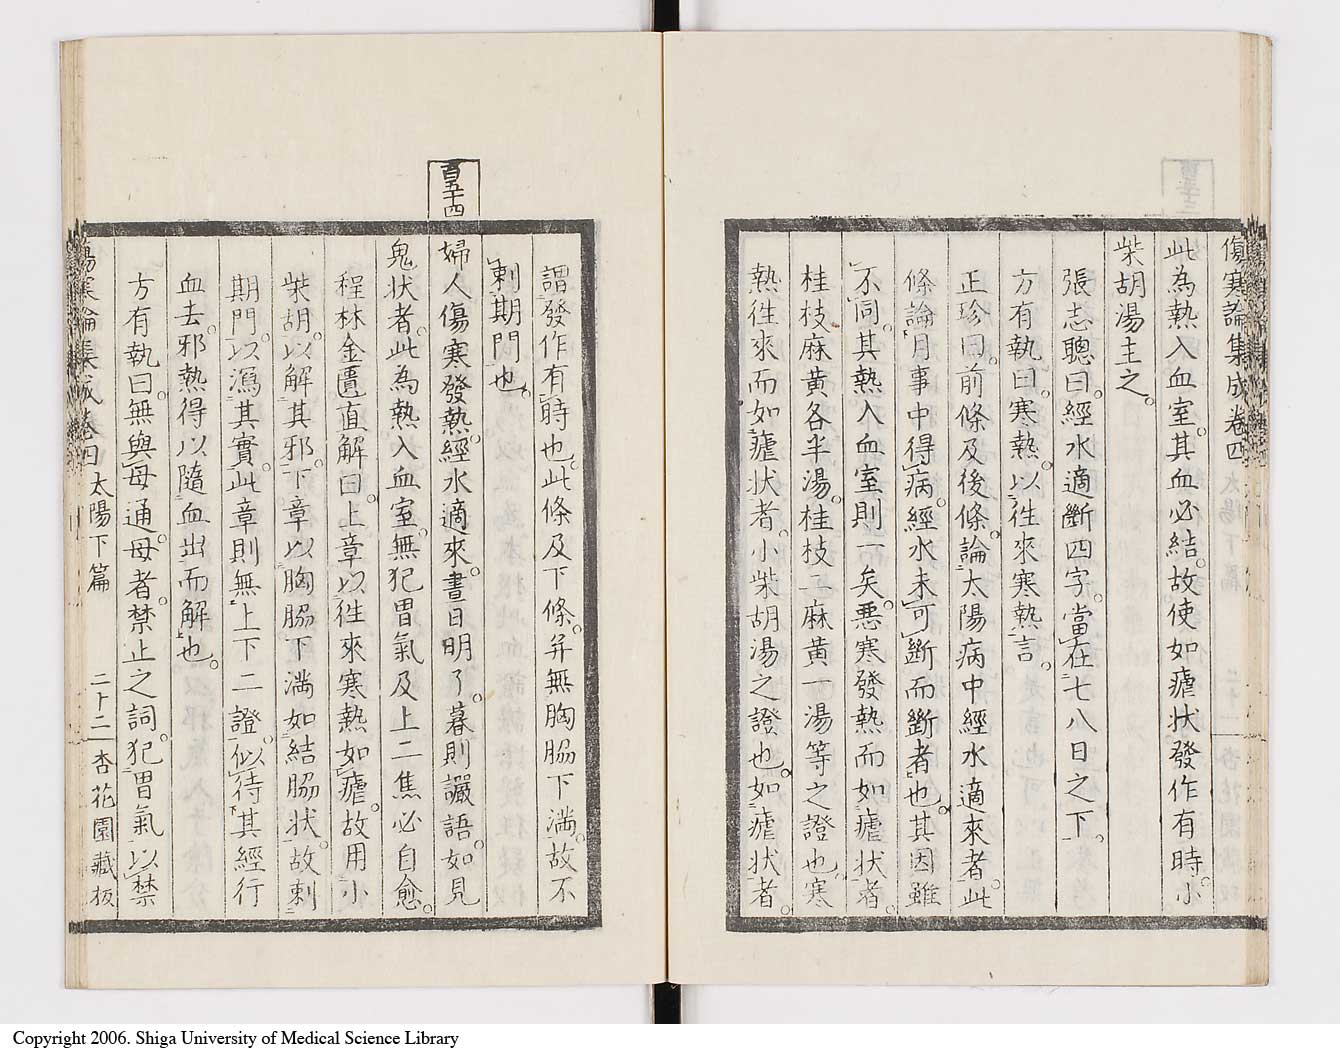 傷寒論集成卷四
此為熱入血室。其血必結。故使如瘧状發作有時。小
柴胡湯主之。
張志聰曰。經水適斷四字。當在七八日之下。
方有執曰。寒熱。以徃來寒熱言。
正珍曰。前條及後條。論太陽病中經水適來者。此
條論月事中得病。經水未可斷而斷者也。其因雖
不同。其熱入血室則一矣。悪寒發熱而如瘧状者。
桂枝麻黄各半湯。桂枝二麻黄一湯等之證也。寒
熱徃來而如瘧状者。小柴胡湯之證也。如瘧状者。
謂發作有時也。此條及下條。并無胸脇下満。故不
刺期門也。
百五十四
婦人傷寒發熱。經水適來。晝日明了。暮則讝語。如見
鬼状者。此為熱入血室。無犯胃氣及上二焦必自愈。
程林金匱直解曰。上章以徃來寒熱如瘧。故用小
柴胡。以解其邪。下章以胸脇下満如結胸状。故刺
期門。以瀉其實。此章則無上下二證。似待其經行
血去。邪熱得以隨血出而解也。
方有執曰。無與毋通。毋者。禁止之詞。犯胃氣以禁
傷寒論集成卷四 太陽下篇 二十二 杏花園藏板
Copyright 2006. Shiga University of Medical Science Library